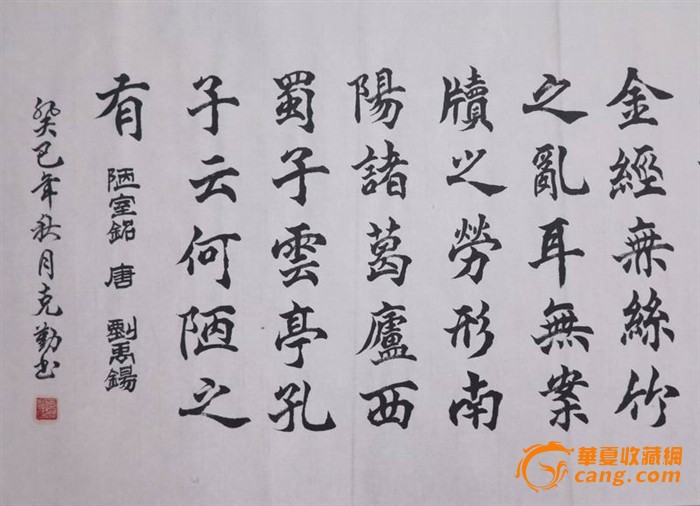 金經無絲竹
之亂耳無案
牘之勞形南
陽諸葛廬西
蜀子雲亭孔
子云何陋之
有
陋室銘 唐 劉禹錫
癸巳年秋月克勤书
華夏收藏網
cang.com